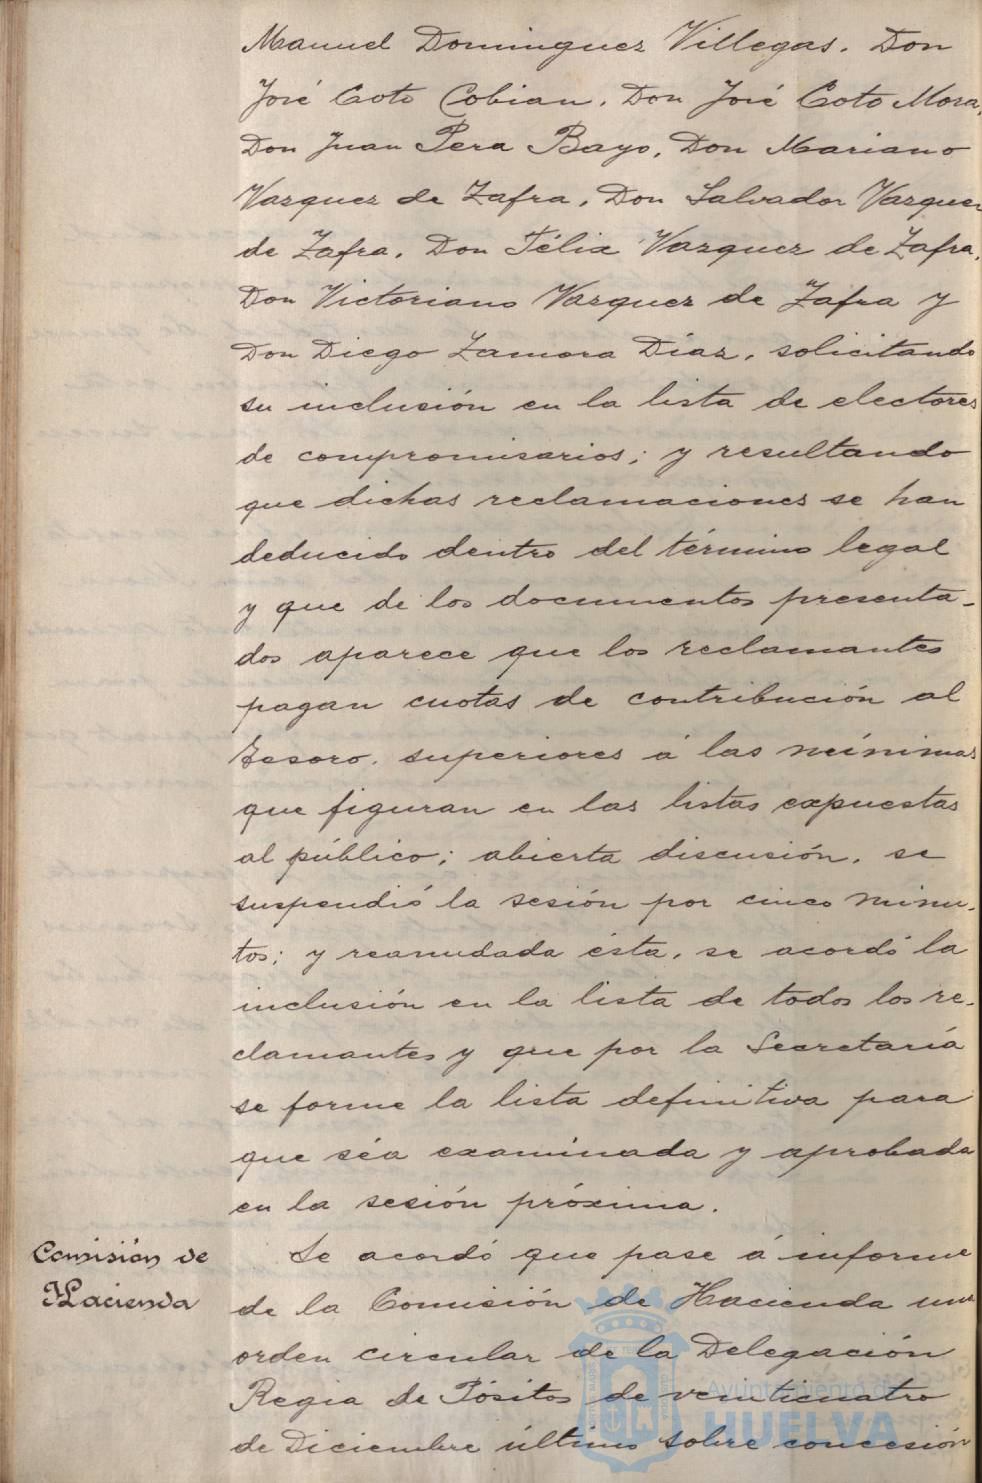 Manuel Dominguez Villegas. Don
José Coto Cobian. Don José Coto Mora,
Don Juan Pera Bayo, Don Mariano
Vazquez de Zafra, Don Salvador Vazquez
de Zafra. Don Félix Vazquez de Zafra,
Don Victoriano Vazquez de Zafra y
Don Diego Zamora Díaz, solicitando
su inclusión en la lista de electores
de compromisarios; y resultando
que dichas reclamaciones se han
deducido dentro del término legal
y que de los documentos presenta-
dos aparece que los reclamantes
pagan cuotas de contribución al
Tesoro, superiores á las mínimas
que figuran en las listas expuestas
al público; abierta discusión, se
suspendió la sesión por cinco minu-
tos; y reanudada ésta, se acordó la
inclusión en la lista de todos los re-
clamantes y que por la Secretaría
se forme la lista definitiva para
que séa examinada y aprobada
en la sesión próxima.
Comisión de
Hacienda
Se acordó que pase á informe
de la Comisión de Hacienda una
orden circular de la Delegación
Regia de Pósitos de veinticuatro
de Diciembre último sobre concesión
Ayuntamiento de
HUELVA